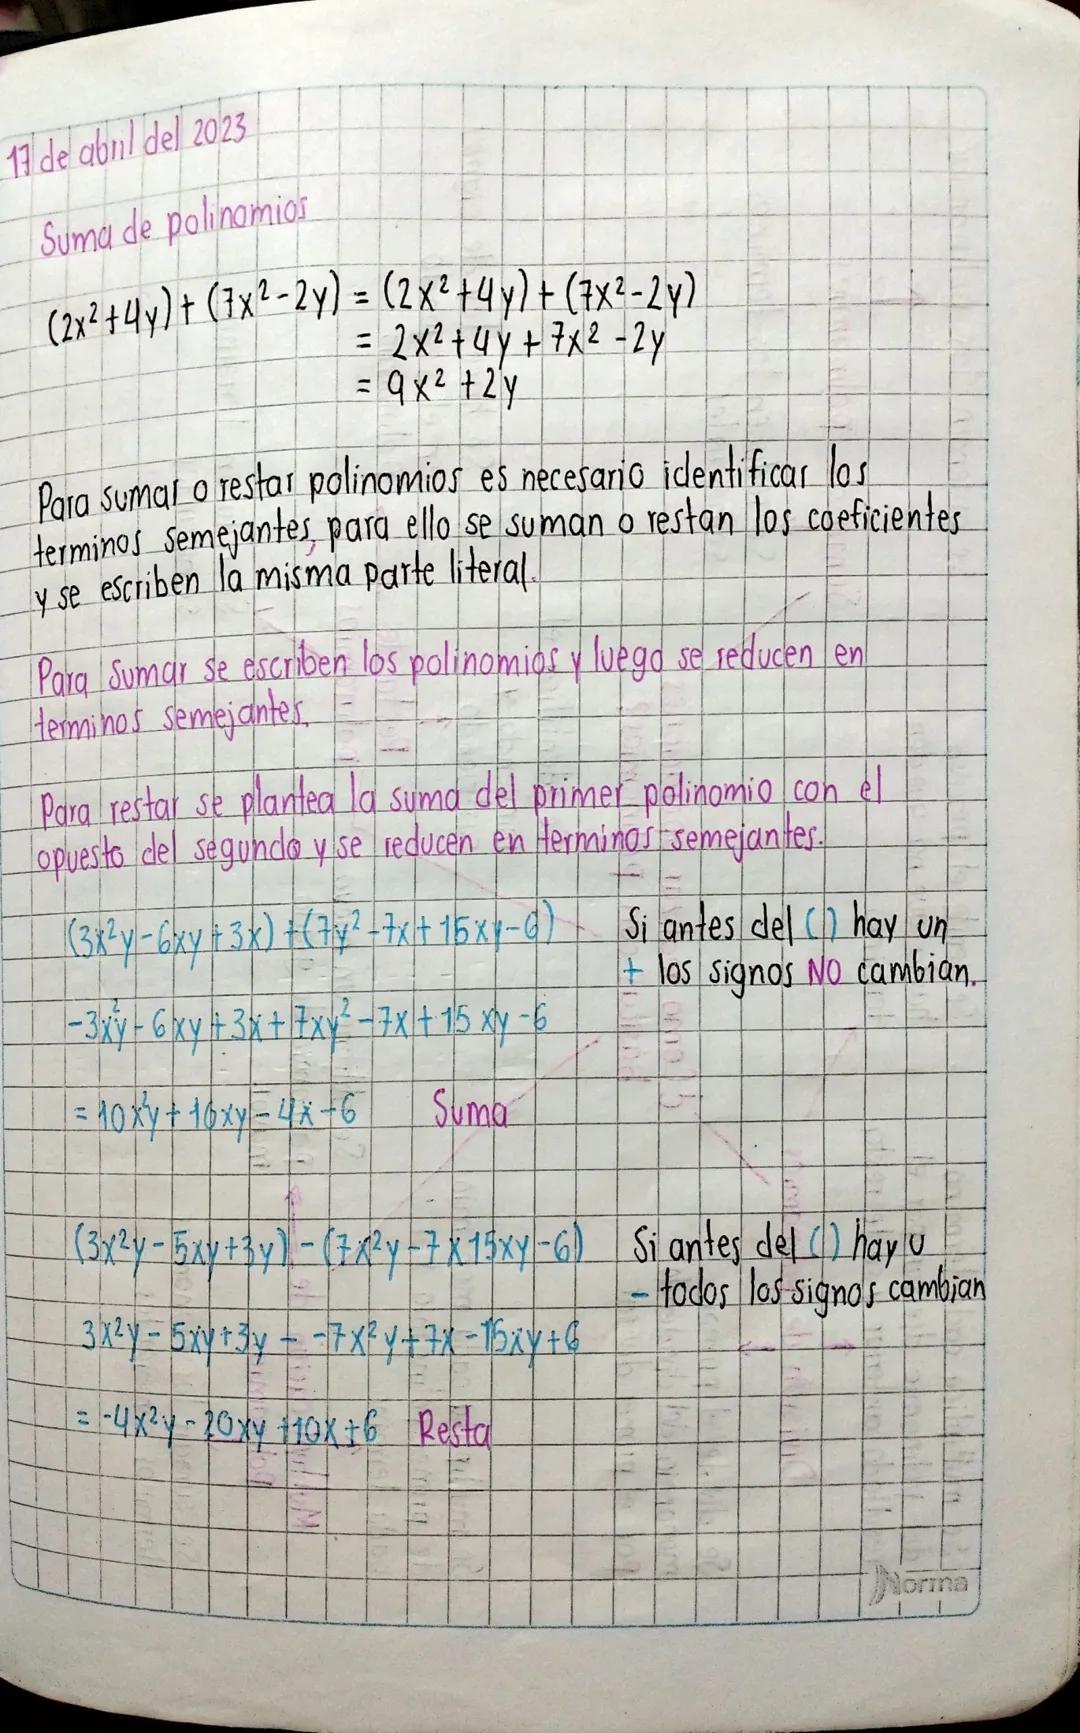 17 de abril del 2023
Suma de polinomios
(2x²+4y)+(7x²-2y) = (2x²+4y)+(7x²-2y)
= 2x²+4y+7x²-2y
= 9x²+2y
Para sumar o restar polinomios es necesario identificar los
terminos semejantes, para ello se suman o restan los coeficientes
y se escriben la misma parte literal.
Para sumar se escriben los polinomios y luego se reducen en
terminos semejantes.
Para restar se plantea la suma del primer polinomio con el
opuesto del segundo y se reducen en terminos semejantes.
(3x²y-6xy+3x)+(7y²-7x+15xy-6) Si antes del () hay un
+ los signos NO cambian.
-3x²y-6xy+3x+7xy²-7x+15xy-6
= 10x²y+16xy-4x-6 Suma
(3x²y-5xy+3y)-(7x²y-7x15xy-6) Si antes del () hay u
- todos los signos cambian
3x²y-5xy+3y--7x²y+7x-15xy+6
= -4x²y-20xy+10x+6 Resta
Norma